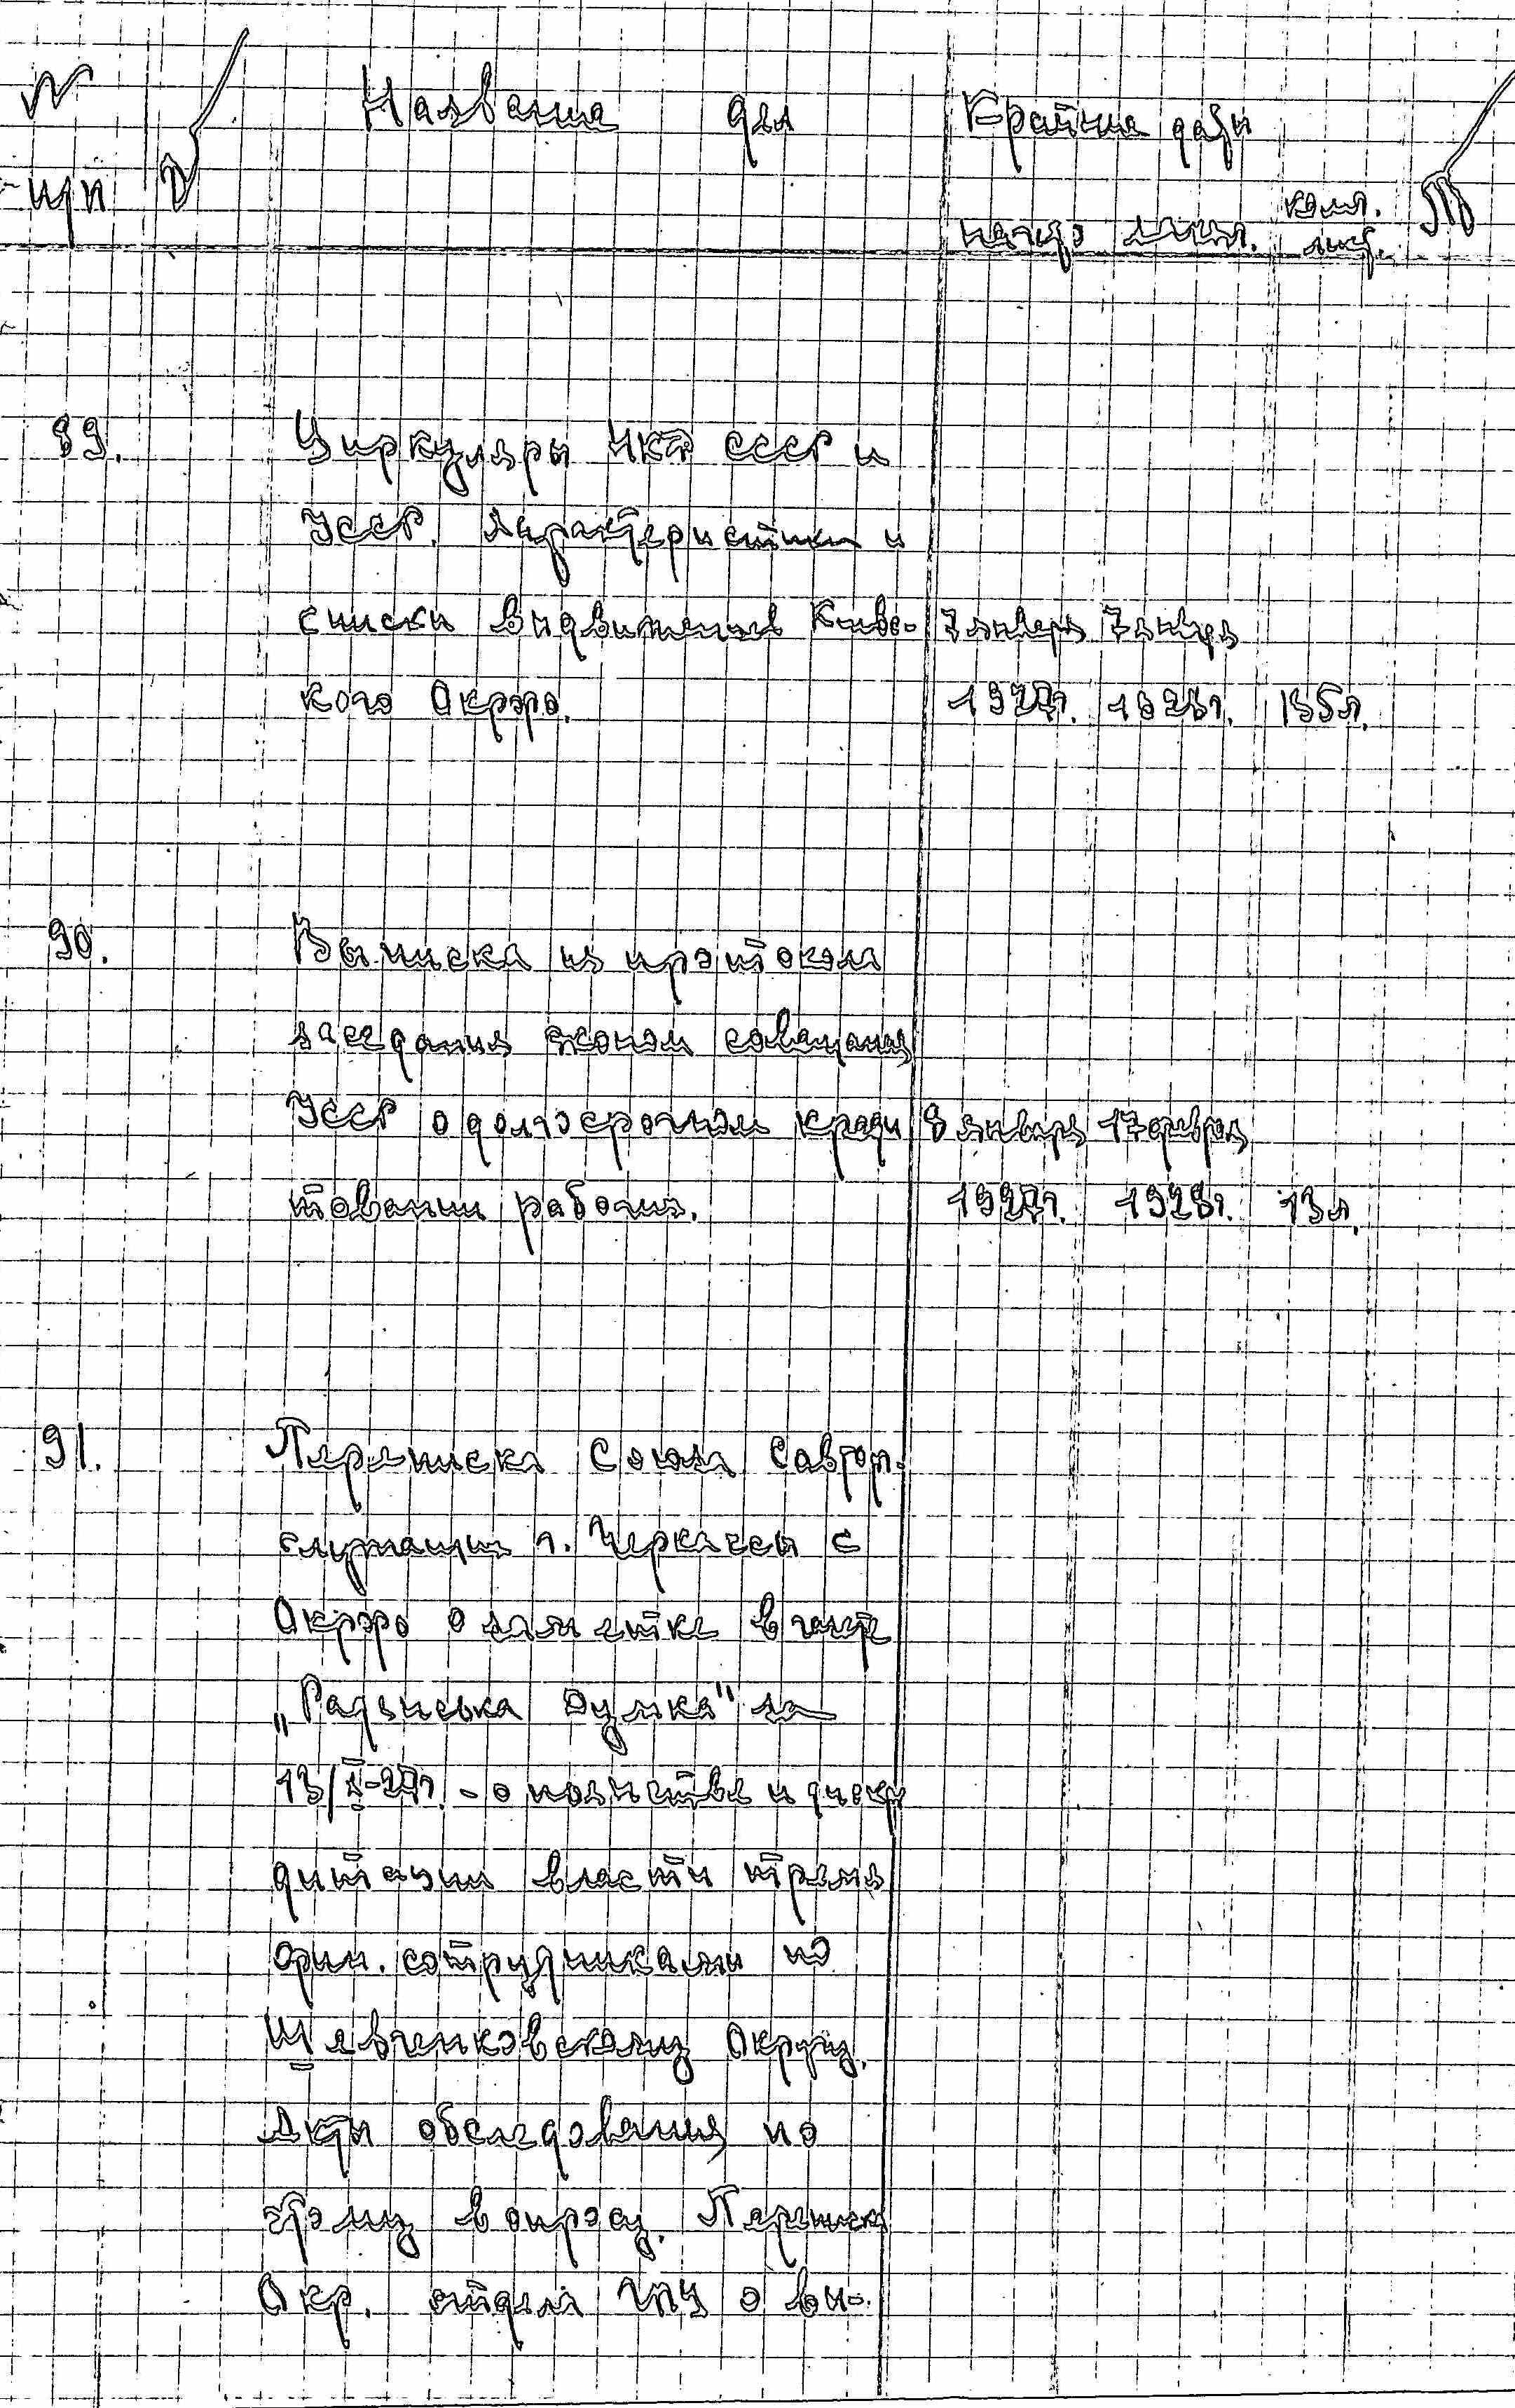 № Название дел Крайние даты
п/п начало оконч. колич. лист.
89. Циркуляры НКФ СССР и
УССР. Характеристики и
списки видвиженцев Киевс- 7 январь 7 январь
кого Окрфо. 1927г. 1928г. 135л.
90. Выписка из протокола
заседания эконом совещания
УССР о долгосрочном креди 8 январь 17 феврал
товании рабочих. 1927г. 1928г. 13л.
91. Переписка Союза Савторг.
служащих г. Черкассы с
Окрфо о заметке в газете
„Радянська Думка" за
13/X-27г. - о пьянстве и дискре
дитации власти тремя
фин. сотрудниками по
Шевченковскому Округу.
Акты обследования по
этому вопросу. Переписка
Окр. отдела ГПУ о ви-